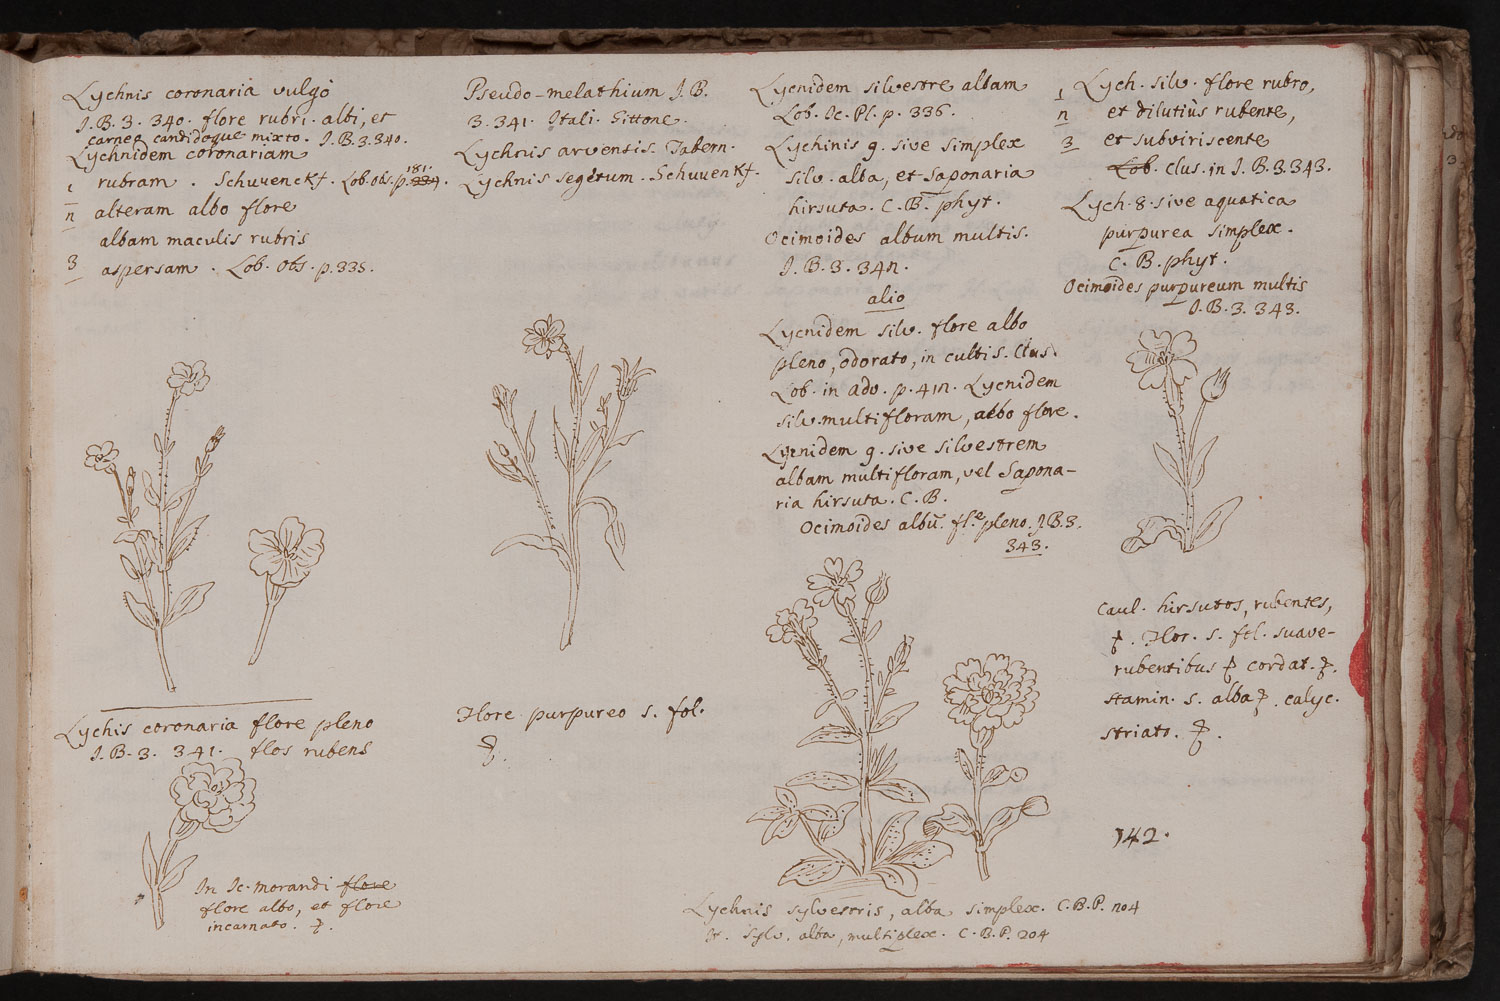 Lychnis coronaria vulgo
J.B. 3. 340. flore rubri. albi, et
carneo candidoque mixto. J.B. 3. 340.
Lychnidem coronariam
1 rubram. Schwenckf. Lob. obs. p. 181.
n alteram albo flore
albam maculis rubris
3 aspersam. Lob. obs. p. 335.
Lychis coronaria flore pleno
J.B. 3. 341. flos rubens
In Ic. morandi flore
flore albo, et flore
incarnato.
Pseudo-melathium J.B.
3. 341. Itali. Gittone.
Lychnis arvensis. Tabern.
Lychnis segetum. Schwenkf.
Flore purpureo s. fol.
Lycnidem silvestre albam
Lob. Ic. Pl. p. 336.
Lychinis 9. sive simplex
silv. alba, et saponaria
hirsuta. C.B. phyt.
Ocimoides album multis.
J.B. 3. 34n.
alio
Lycnidem silv. flore albo
pleno, odorato, in cultis. Clus.
Lob. in adv. p. 41n. Lycnidem
silv. multifloram, albo flore.
Lycnidem 9. sive silvestrem
albam multifloram, vel Sapona-
ria hirsuta. C.B.
Ocimoides albũ. fl.e pleno. J.B. 3.
343.
Lychnis sylvestris, alba simplex. C.B.P. no4
It. sylv. alba, multiplex. C.B.P. 204
1 Lych. silv. flore rubro,
n et dilutiùs rubente,
3 et subviriscente
Lob. Clus. in J.B. 3. 343.
Lych. 8. sive aquatica
purpurea simplex.
C.B. phyt.
Ocimoides purpureum multis
J.B. 3. 343.
Caul. hirsutos, rubentes,
Flor. s. ftl. suave-
rubentibus cordat.
stamin. s. alba. calyc.
striato.
142.